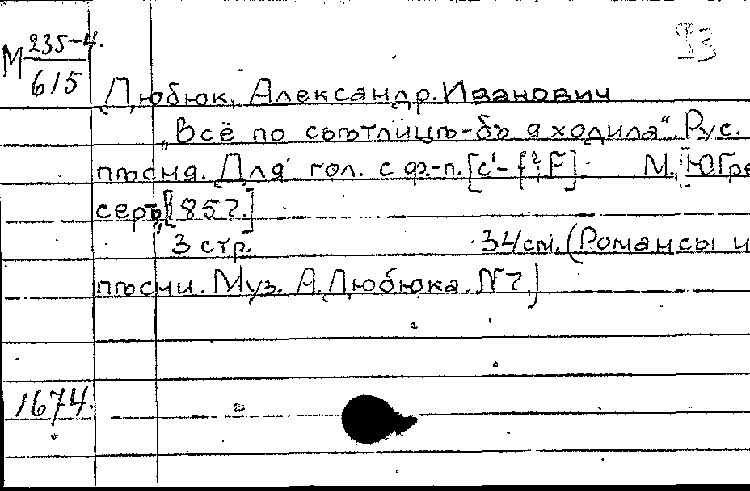 М 235-4.
615
93
Дюбюк, Александр Иванович
„Всё по свѣтлицѣ-бъ я ходила“. Рус.
пѣсня. Для гол. с ф-п. [c¹-f², F]. М. Ю Гре
серъ, [185?.]
3 стр. 34 см. (Романсы и
пѣсни. Муз. А. Дюбюка. N 7.)
1674.